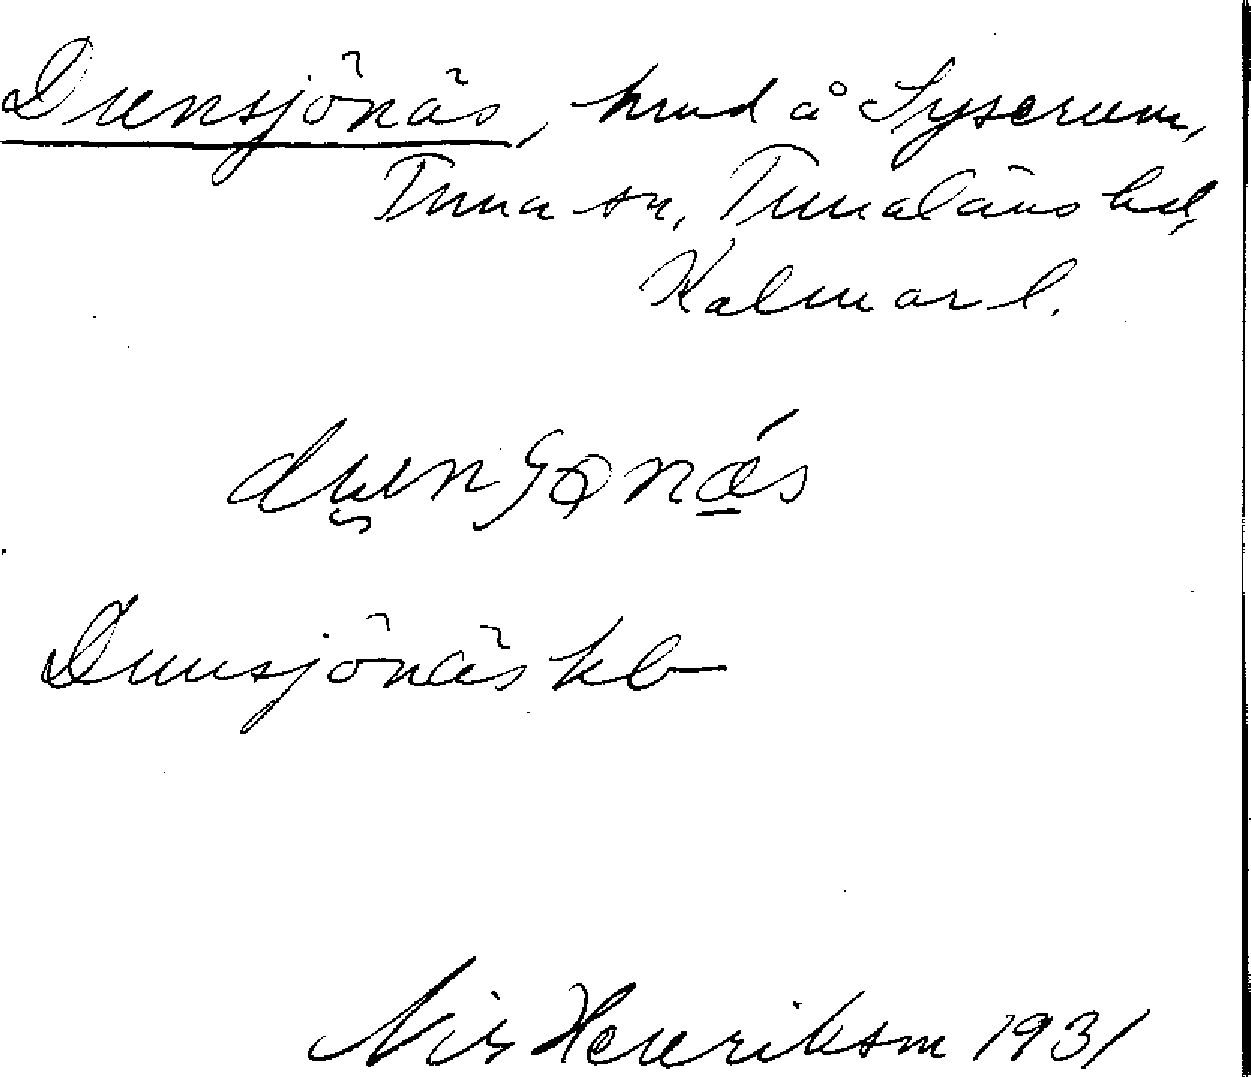 Dunsjönäs, å Syserum,
Tuna sn, Tunaläns hd,
Kalmar l.
Dunsjönäs kb
Nils Henriksson 1931